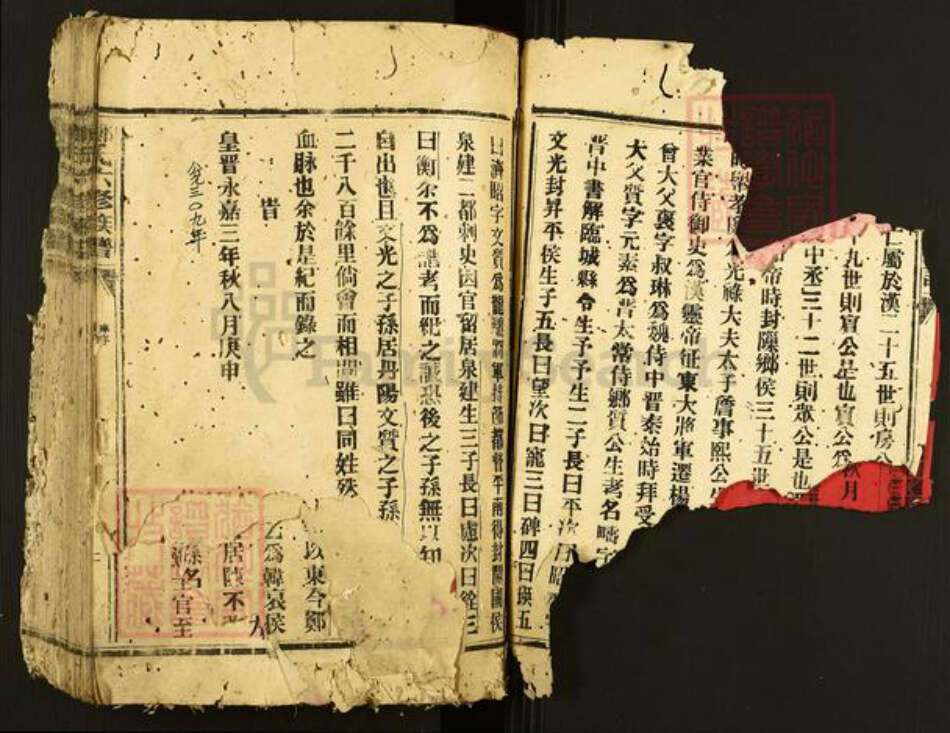 仁屬於漢二十五世則房公
十九世則賓公是也賓公爲
中丞三十二世則眾公是也
帝時封陳鄉侯三十五世
光祿大夫太子詹事熙公生
業官侍御史爲漢靈帝征東大將軍遷楊
曾大父襃字叔琳爲魏侍中晉泰始時拜受
大父質字元素爲晉太常侍鄉質公生考名疇字
晉中書解臨城縣令生予予生二子長曰平次曰昭
文光封昇平侯生子五長曰望次曰寵三曰碑四曰瑛五
曰濟昭字文質爲龍驤將軍持節都督平南得封開國侯
泉建二都刺史因官留居泉建生三子長曰慮次曰銓三
曰衡余不爲譜考而靴之誠恐後之子孫無以知
自出也且文光之子孫居丹陽文質之子孫
二千八百餘里倘會而相問雖曰同姓殊
血脉也余於是紀而錄之
旹
皇晉永嘉三年秋八月庚申
公元三〇九年
以東今鄭
爲韓哀侯
居陳不
縣名官至
FamilySearch